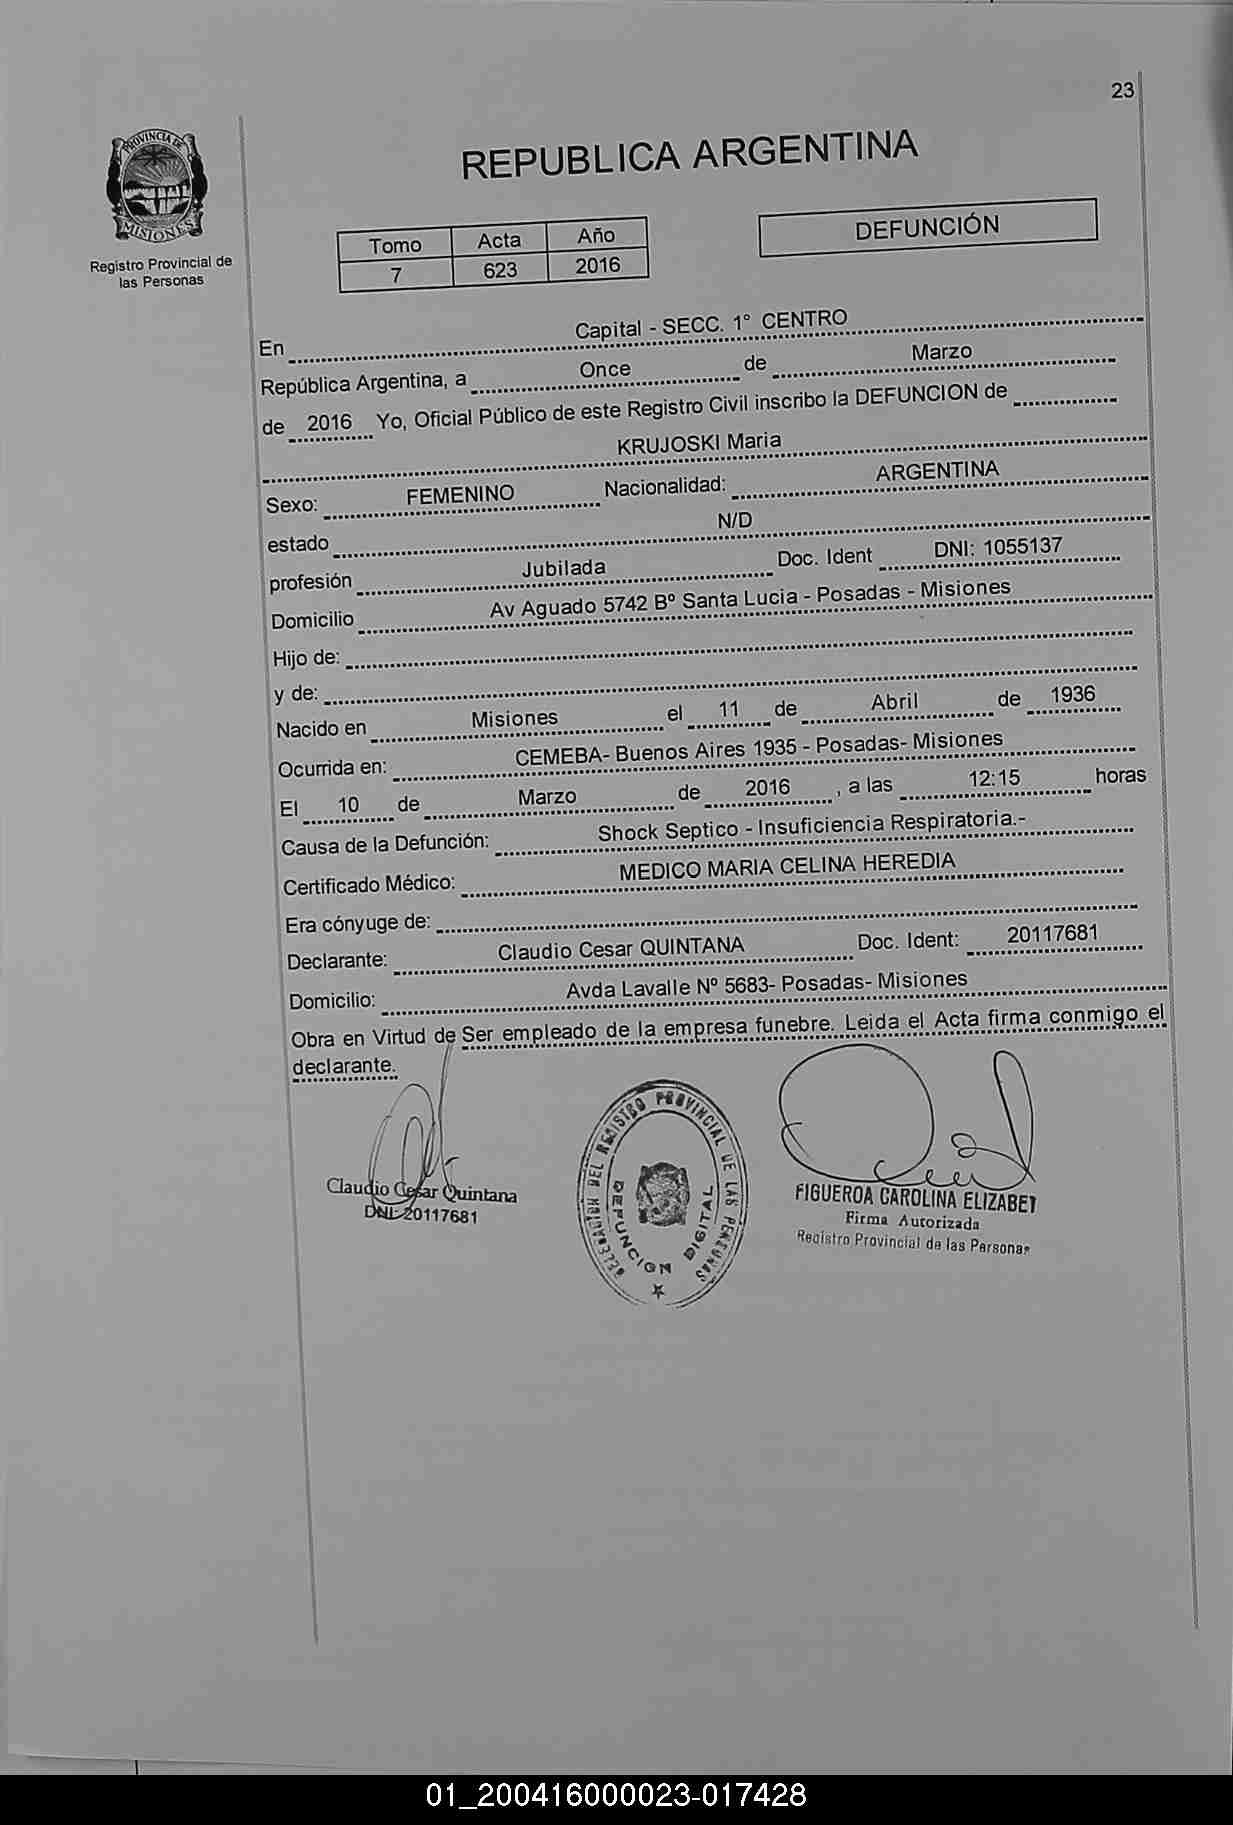 23
PROVINCIA DE
MISIONES
Registro Provincial de
las Personas
REPUBLICA ARGENTINA
Tomo Acta Año
7 623 2016
DEFUNCIÓN
En Capital - SECC. 1° CENTRO
República Argentina, a Once de Marzo
de 2016 Yo, Oficial Público de este Registro Civil inscribo la DEFUNCION de
KRUJOSKI Maria
Sexo: FEMENINO Nacionalidad: ARGENTINA
estado N/D
profesión Jubilada Doc. Ident DNI: 1055137
Domicilio Av Aguado 5742 Bº Santa Lucia - Posadas - Misiones
Hijo de:
y de:
Nacido en Misiones el 11 de Abril de 1936
Ocurrida en: CEMEBA- Buenos Aires 1935 - Posadas- Misiones
El 10 de Marzo de 2016 , a las 12:15 horas
Causa de la Defunción: Shock Septico - Insuficiencia Respiratoria.-
Certificado Médico: MEDICO MARIA CELINA HEREDIA
Era cónyuge de:
Declarante: Claudio Cesar QUINTANA Doc. Ident: 20117681
Domicilio: Avda Lavalle Nº 5683- Posadas- Misiones
Obra en Virtud de Ser empleado de la empresa funebre. Leida el Acta firma conmigo el
declarante.
Claudio Cesar Quintana
DNI 20117681
DELEGACION DEL REGISTRO PROVINCIAL DE LAS PERSONAS
DEFUNCION DIGITAL
FIGUEROA CAROLINA ELIZABET
Firma Autorizada
Registro Provincial de las Personas
01_200416000023-017428